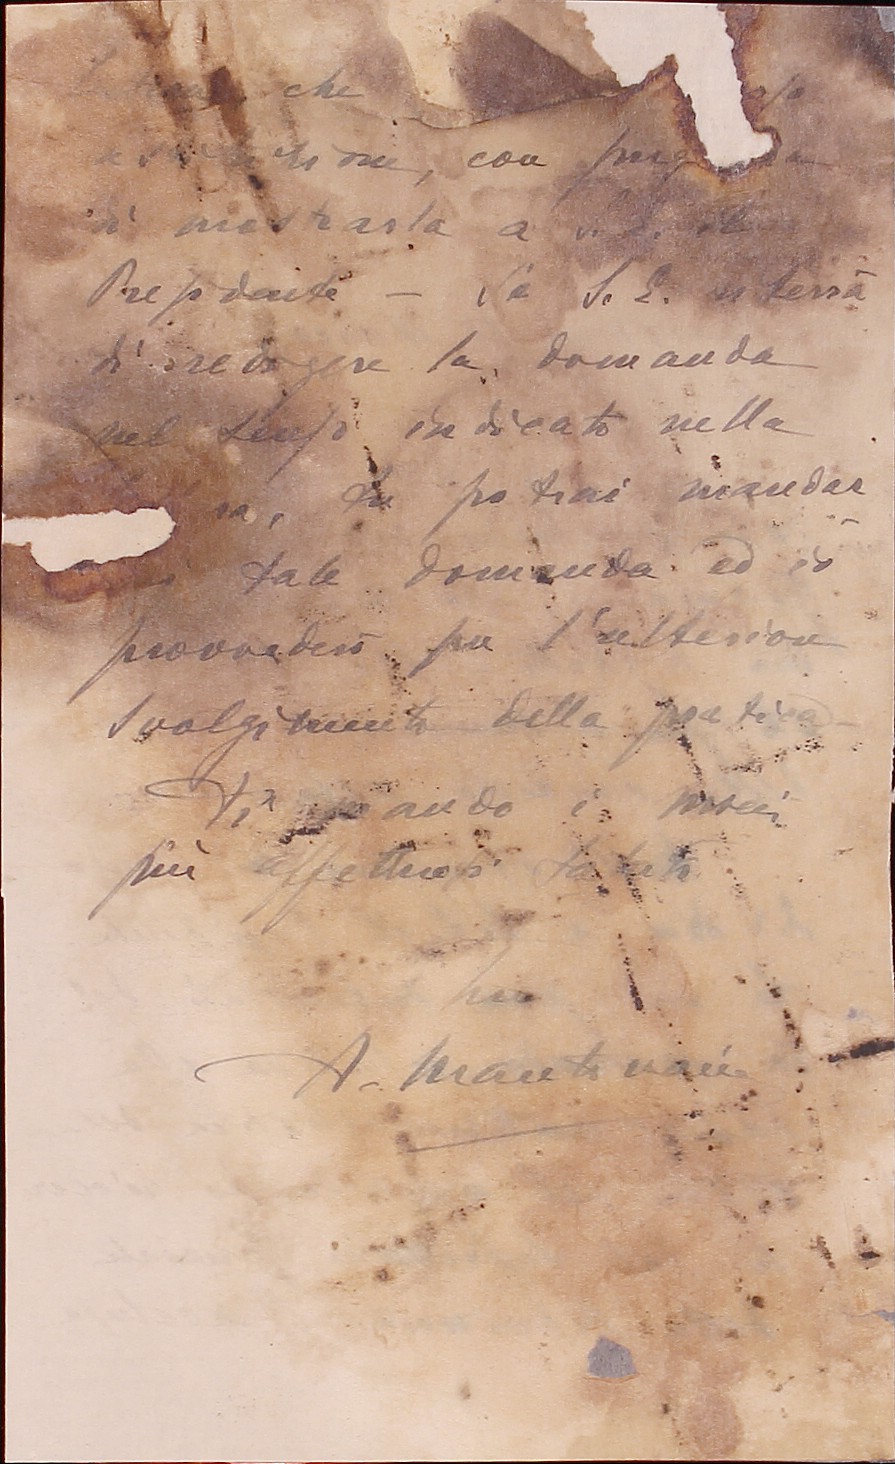 che
con
di mostrarla a S. E. il
Presidente — Se S. E. riterrà
di redigere la domanda
nel senso indicato nella
tu potrai mandar
tale domanda ed io
provvederò per l'ulteriore
svolgimento della pratica
Ti mando i miei
più affettuosi saluti
tuo
A. Mantovani